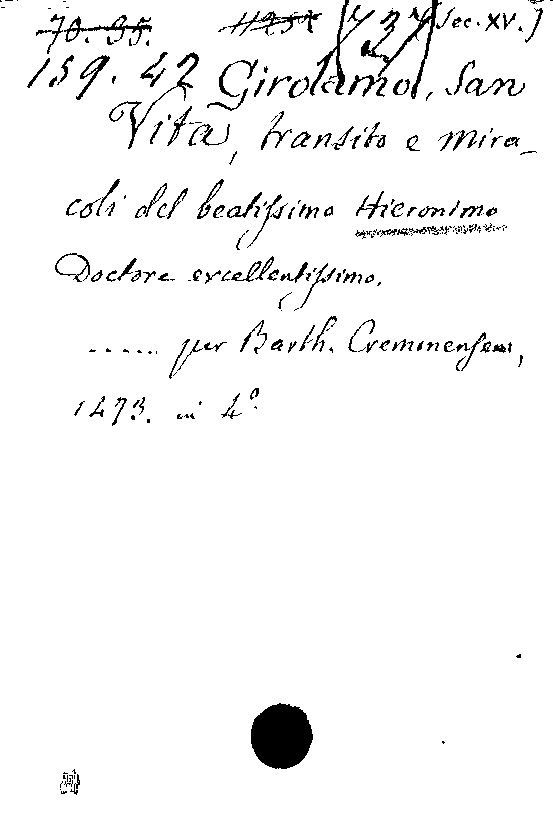 70. 35. [Sec. XV.]
159. 42 Girolamo, San
Vita, transito e mira-
coli del beatissimo Hieronimo
Doctore excellentissimo.
..... per Barth. Cremonensem,
1473. in 4°.